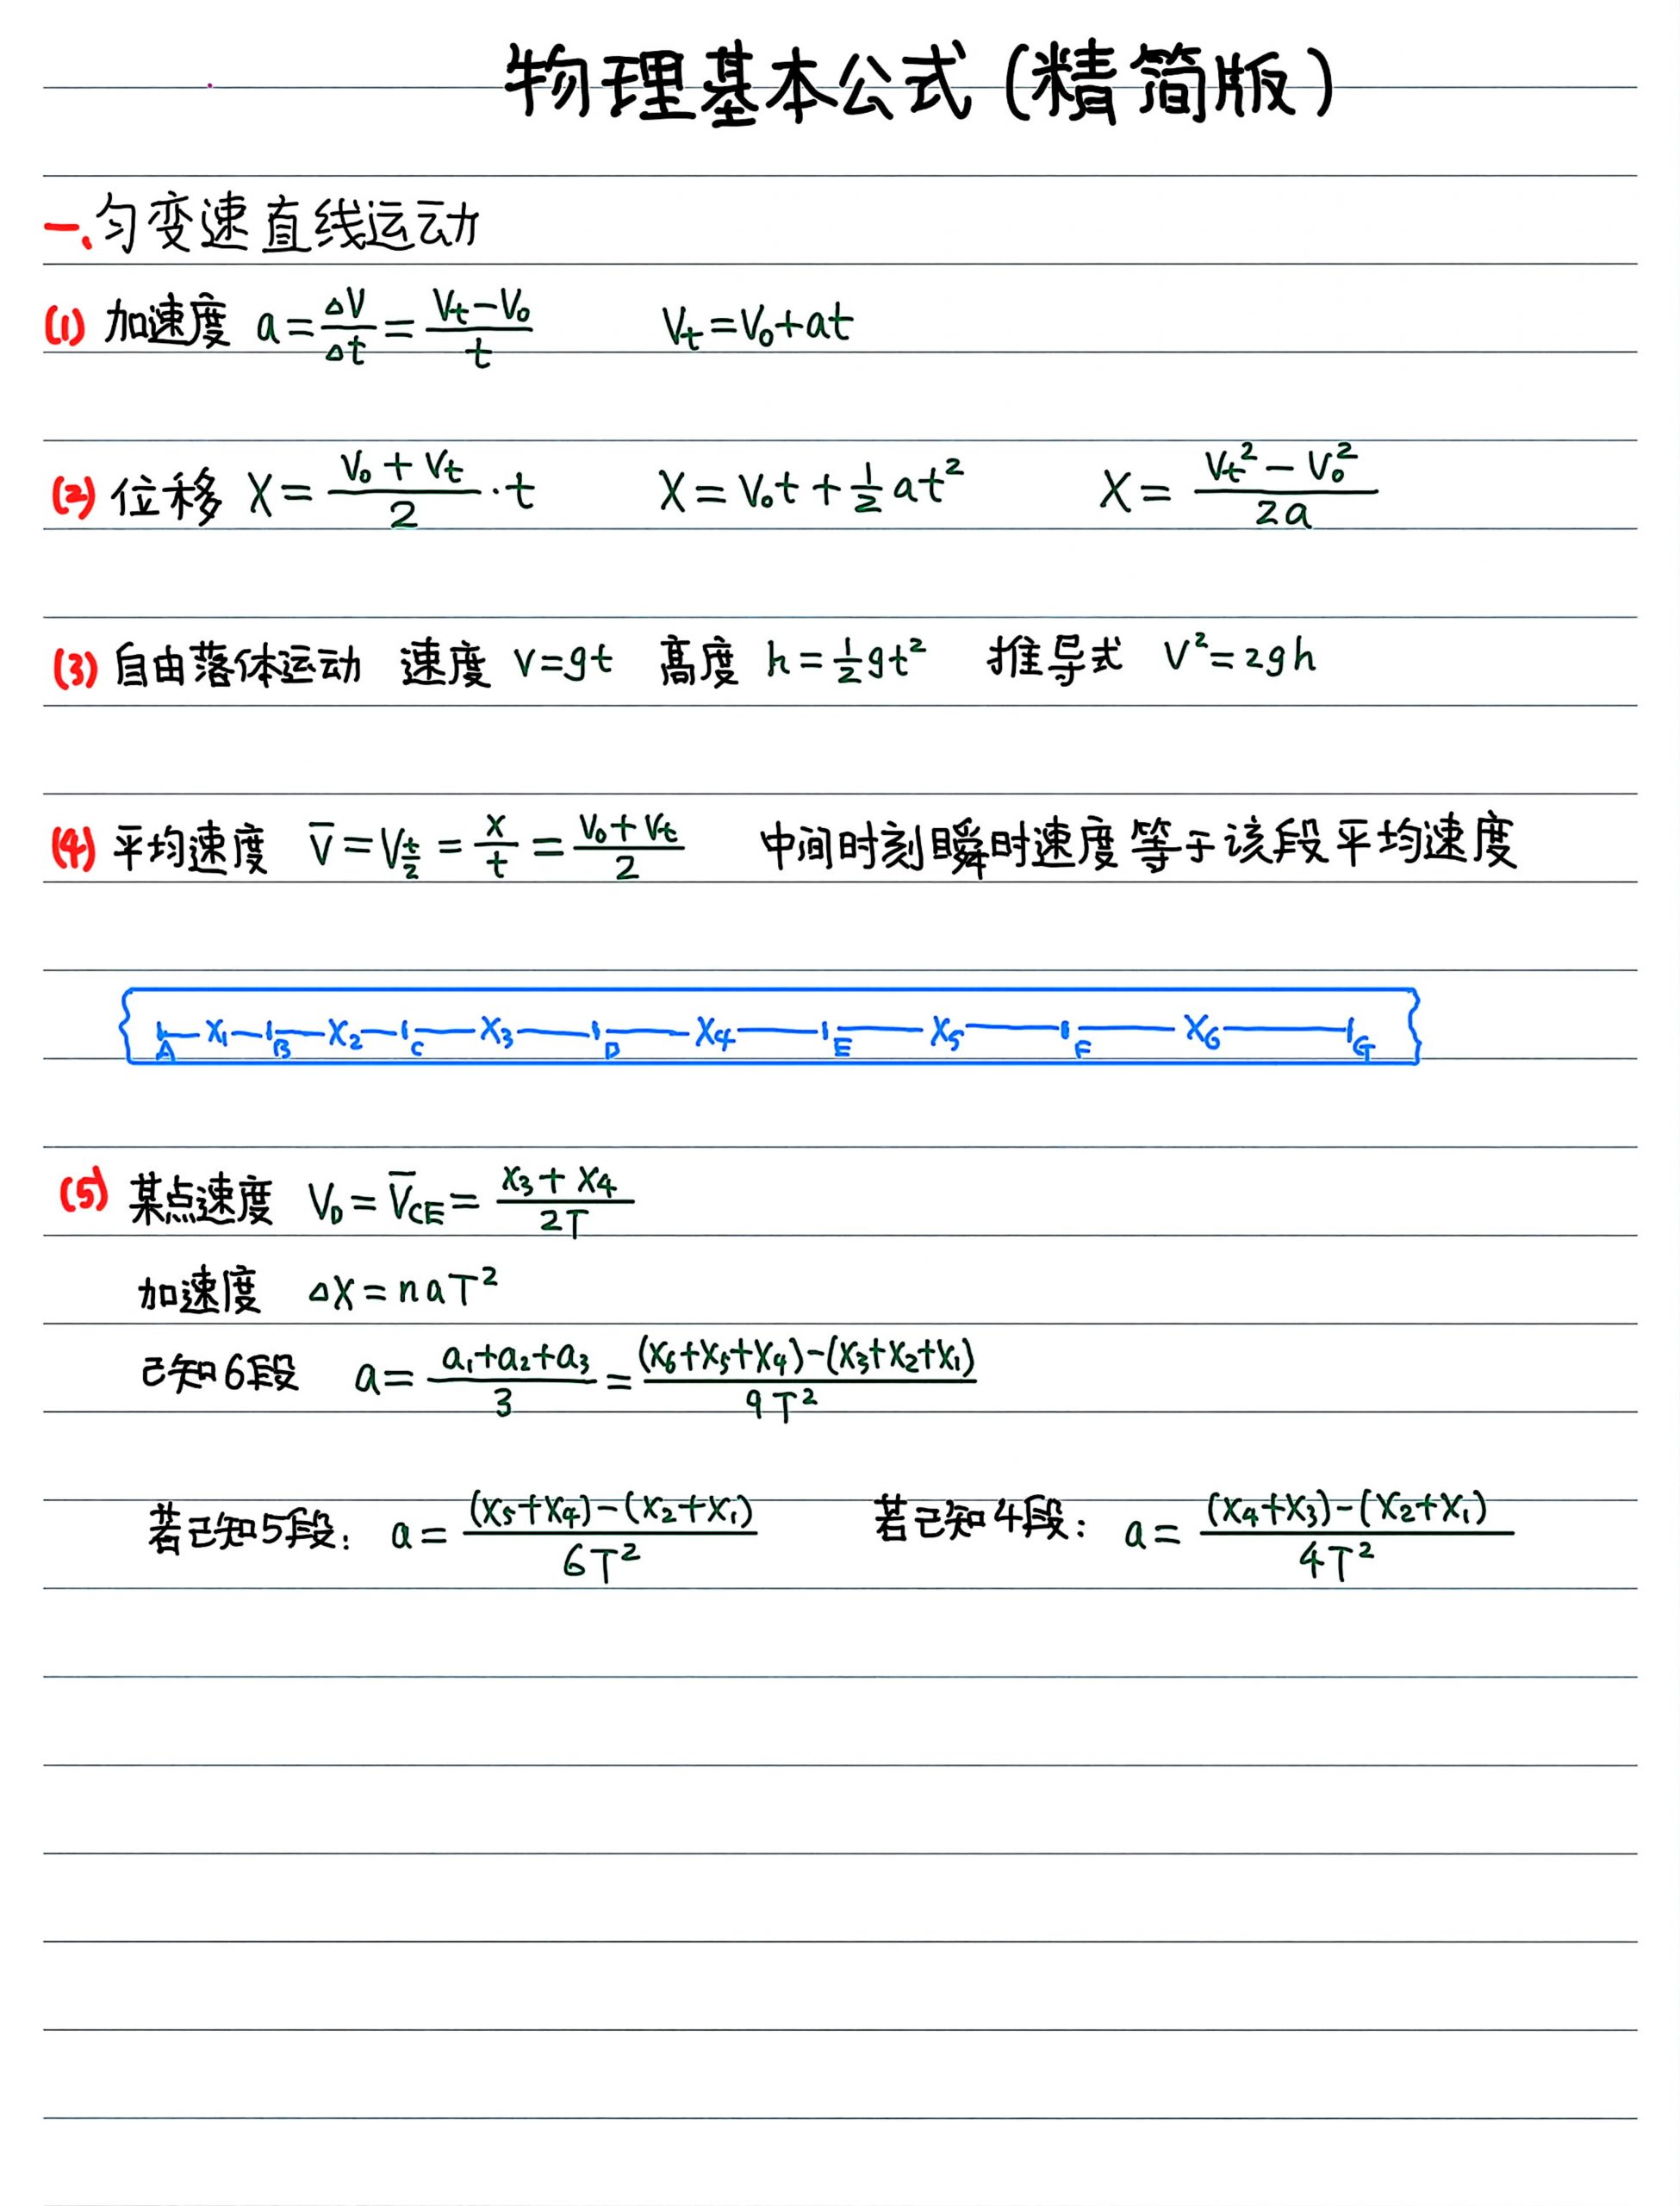 物理基本公式(精简版)
一、匀变速直线运动
(1) 加速度 a=△V/△t=(Vt-V₀)/t Vt=V₀+at
(2) 位移 X=(V₀+Vt)/2·t X=V₀t+½at² X=(Vt²-V₀²)/2a
(3) 自由落体运动 速度 V=gt 高度 h=½gt² 推导式 V²=2gh
(4) 平均速度 V̄=V_(t/2)=x/t=(V₀+Vt)/2 中间时刻瞬时速度等于该段平均速度
A X₁ B X₂ C X₃ D X₄ E X₅ F X₆ G
(5) 某点速度 V_D=V̄_CE=(X₃+X₄)/2T
加速度 △X=naT²
已知6段 a=(a₁+a₂+a₃)/3=((X₆+X₅+X₄)-(X₃+X₂+X₁))/9T²
若已知5段: a=((X₅+X₄)-(X₂+X₁))/6T² 若已知4段: a=((X₄+X₃)-(X₂+X₁))/4T²